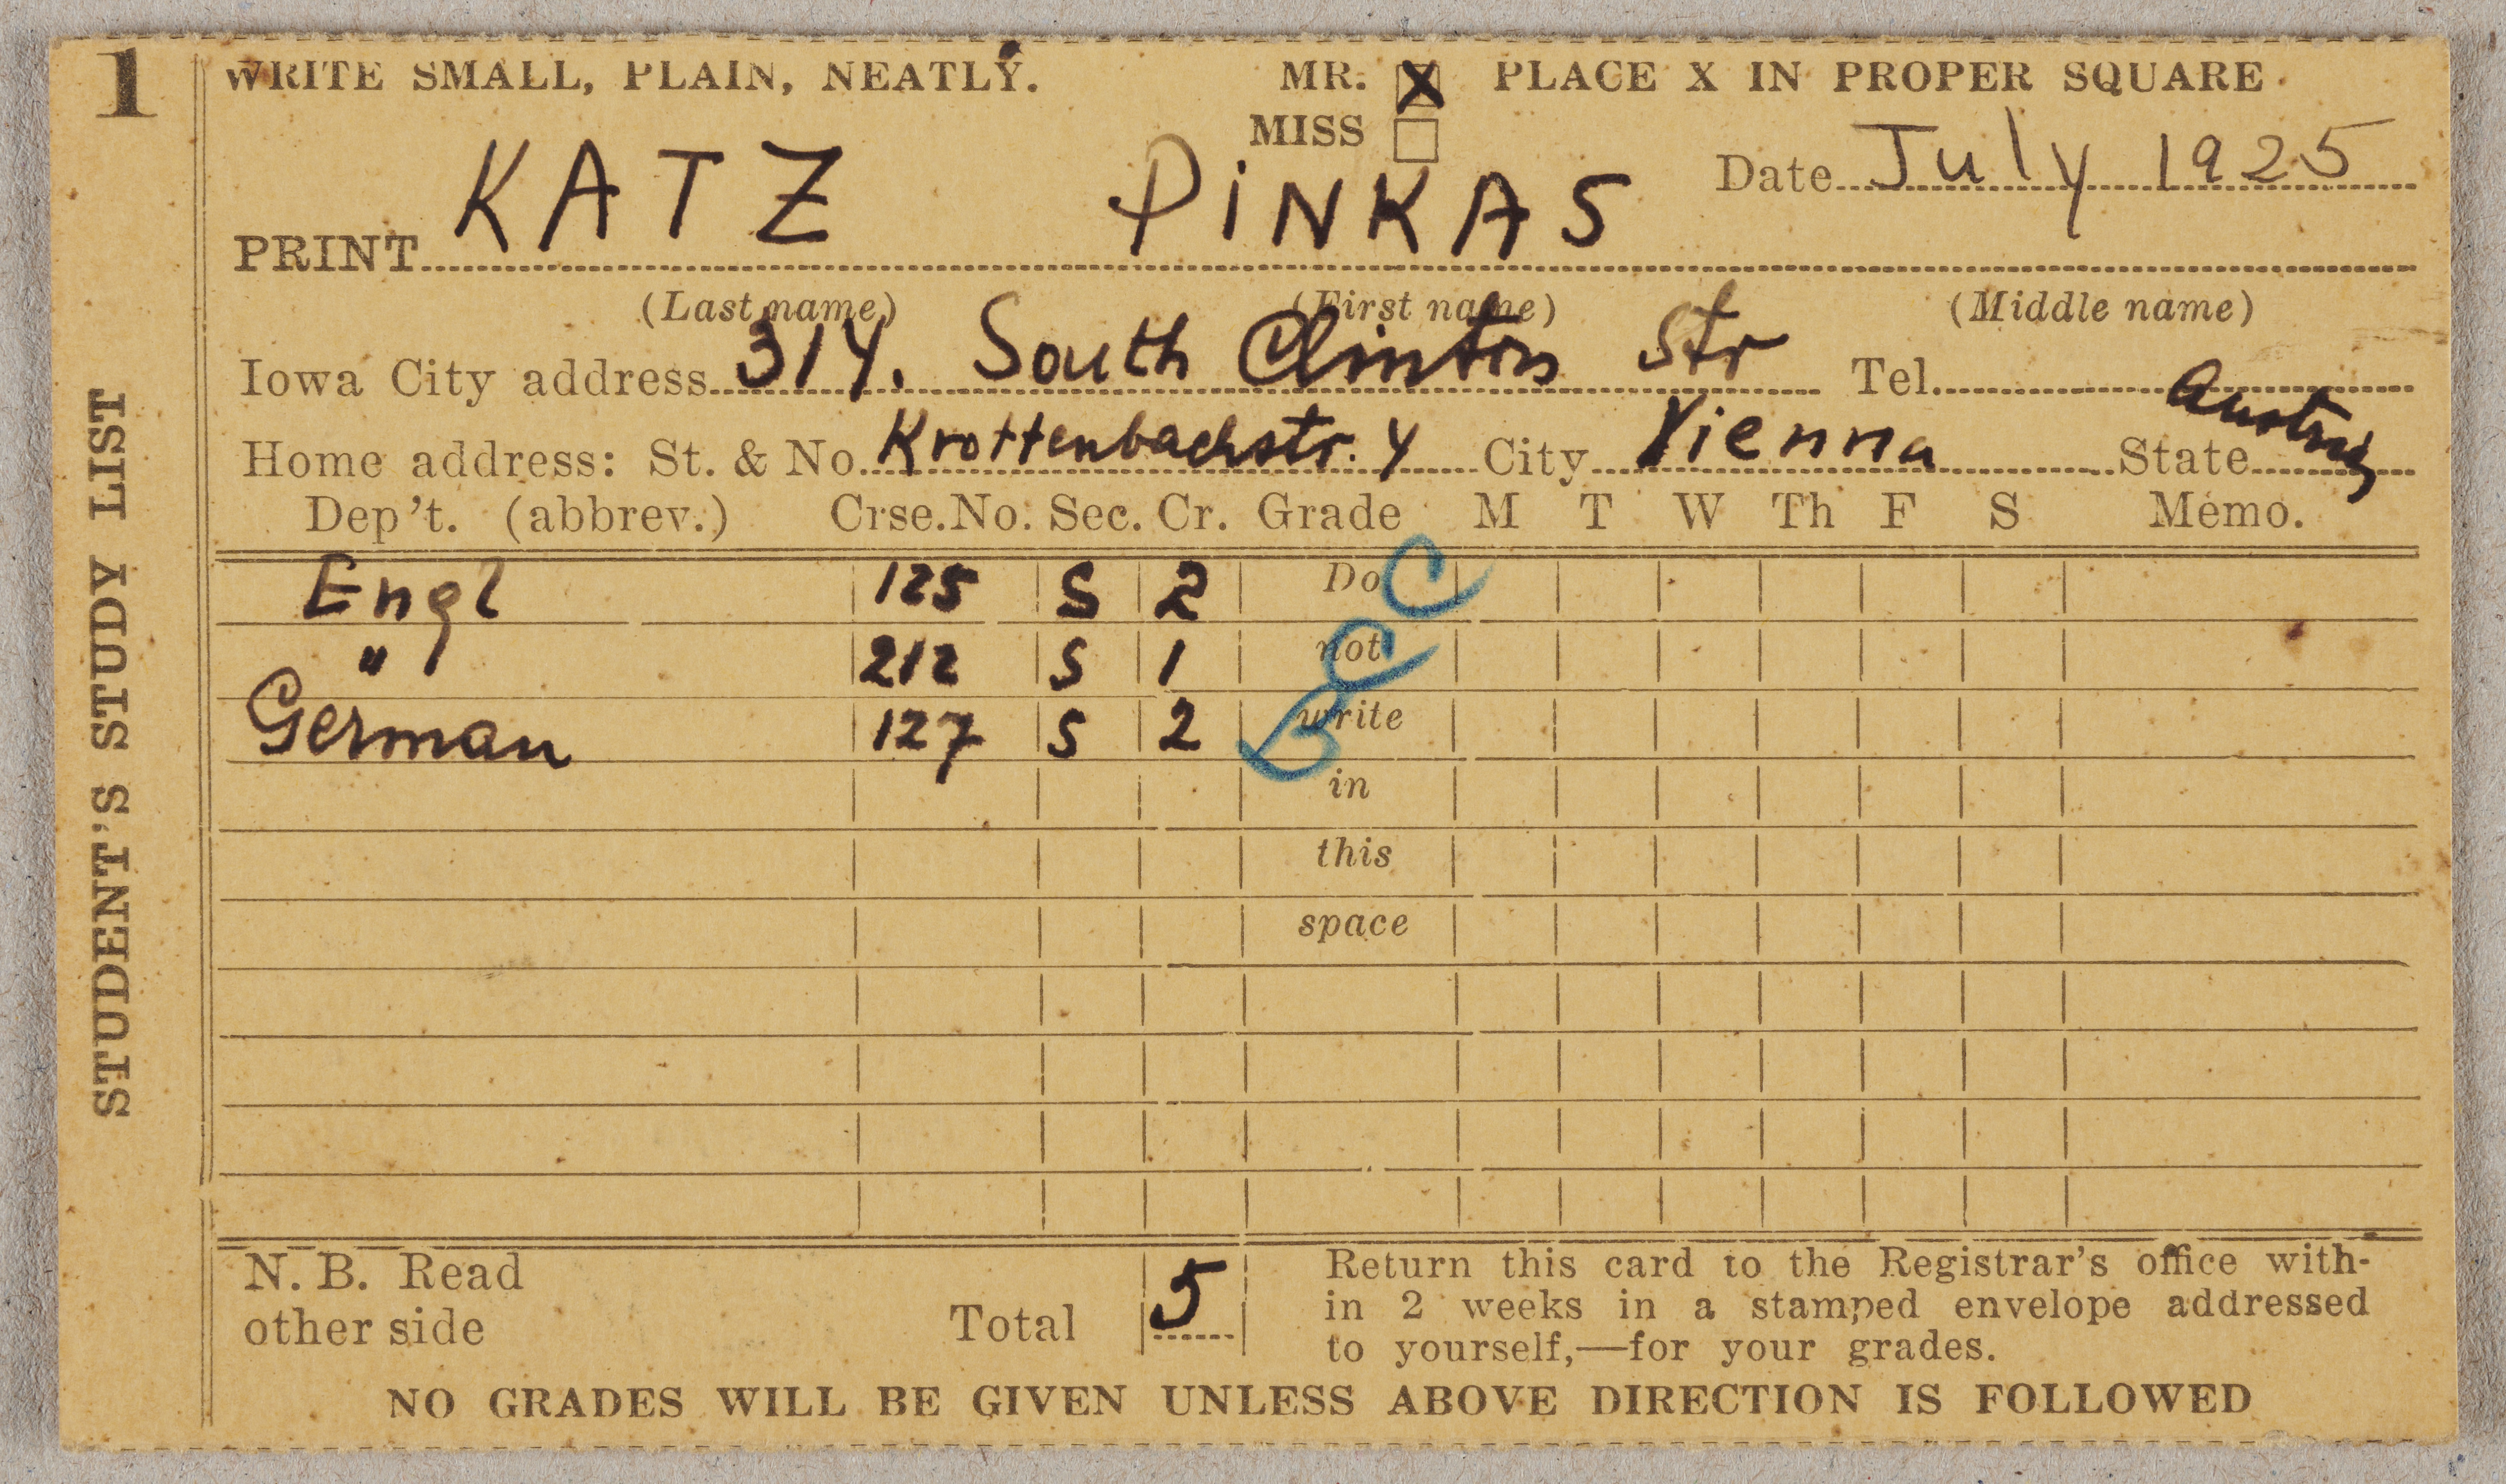 1
WRITE SMALL, PLAIN, NEATLY. MR. X PLACE X IN PROPER SQUARE
MISS
Date July 1925
PRINT KATZ PiNKAS
(Last name) (First name) (Middle name)
Iowa City address 314. South Clinton Str Tel.
Home address: St. & No. Krottenbachstr. 4 City Vienna State Austria
Dep't. (abbrev.) Crse.No. Sec. Cr. Grade M T W Th F S Memo.
Engl 125 S 2 Do C
" 212 S 1 not C
German 127 S 2 write B
in
this
space
N. B. Read
other side
Total 5
Return this card to the Registrar's office with-
in 2 weeks in a stamped envelope addressed
to yourself,—for your grades.
NO GRADES WILL BE GIVEN UNLESS ABOVE DIRECTION IS FOLLOWED
STUDENT'S STUDY LIST